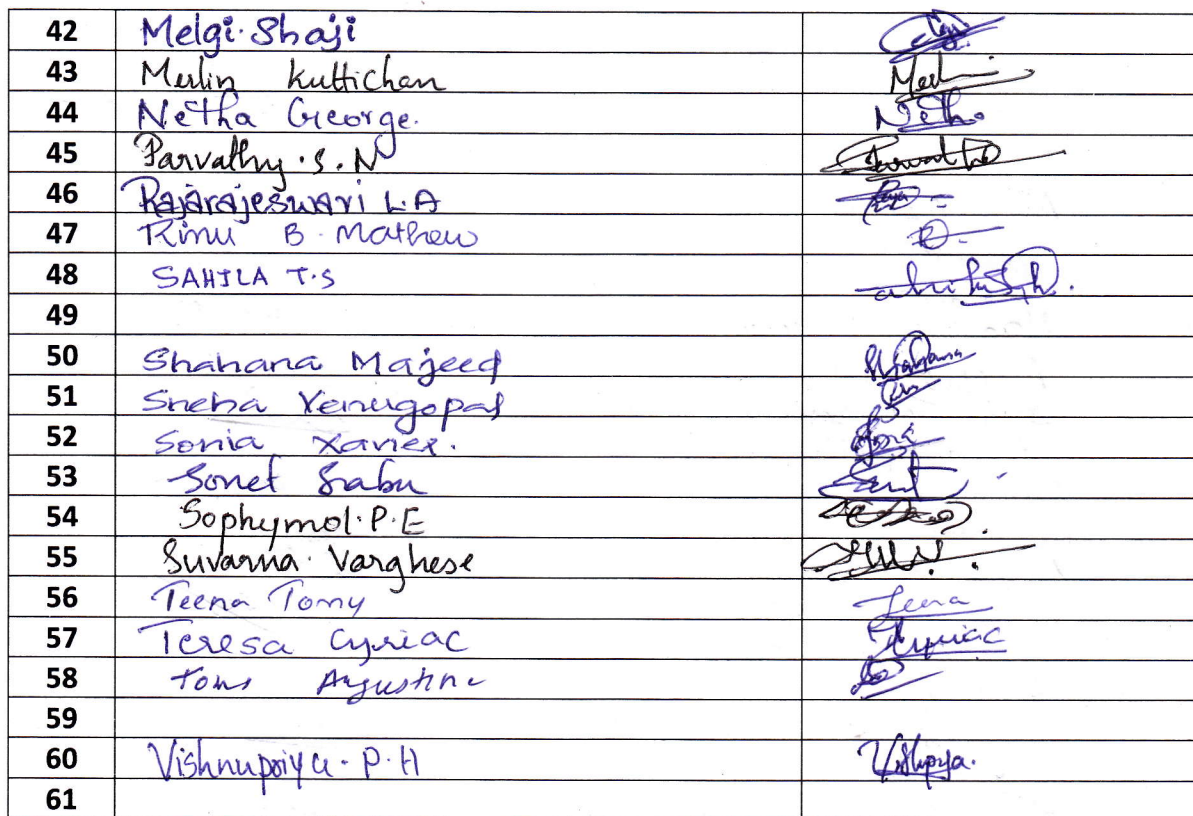 42 Melgi. Shaji
43 Merlin Kuttichan Merlin
44 Netha George. Netha
45 Parvathy. S. N Parvathy
46 Rajarajeswari L.A
47 Rinu B. Mathew
48 SAHILA T.S
49
50 Shahana Majeed Shahana
51 Sneha Venugopal
52 Sonia Xavier.
53 Sonet Sabu
54 Sophymol. P. E
55 Suvarna. Varghese
56 Teena Tomy Teena
57 Teresa Cyriac Cyriac
58 Toms Augustine
59
60 Vishnupriya. P. H
61